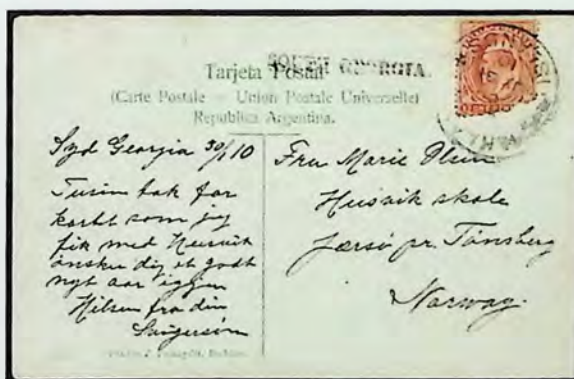 Tarjeta Postal
SOUTH GEORGIA.
(Carte Postale – Union Postale Universelle)
República Argentina.
Syd Georgia 30/1 10
Tusin tak for
kortet som jeg
fik med Husvik
ønsker dig et godt
nyt aar igjen
Hilsen fra din
Fru Marie
Husvik skole
Jærsø pr. Tønsberg
Norway.